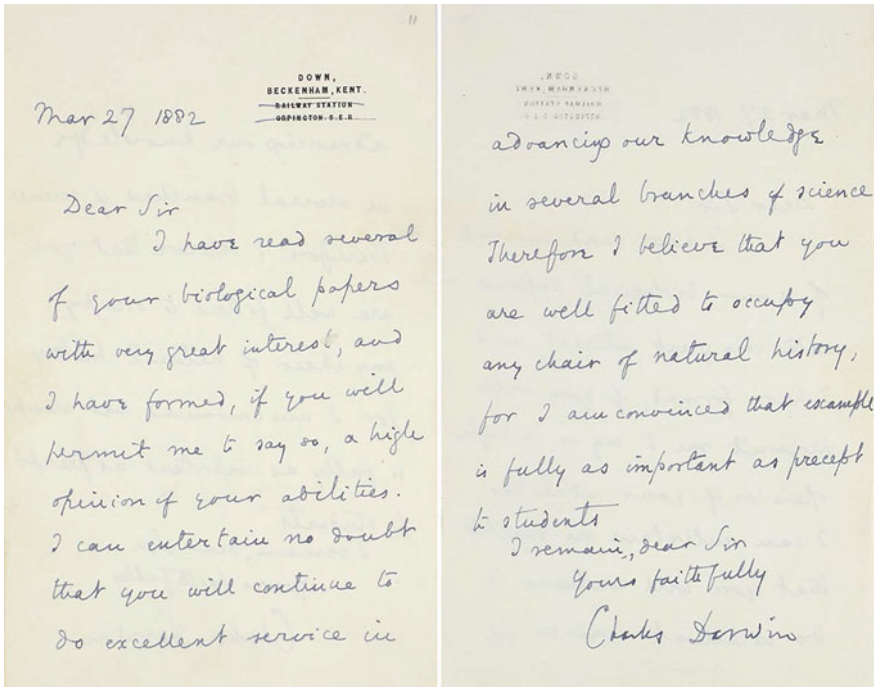 11
DOWN,
BECKENHAM, KENT.
RAILWAY STATION
ORPINGTON. S.E.R.
Mar 27 1882
Dear Sir
I have read several
of your biological papers
with very great interest, and
I have formed, if you will
permit me to say so, a high
opinion of your abilities.
I can entertain no doubt
that you will continue to
do excellent service in
advancing our knowledge
in several branches of science
Therefore I believe that you
are well fitted to occupy
any chair of natural history,
for I am convinced that example
is fully as important as precept
to students
I remain, dear Sir
Yours faithfully
Charles Darwin